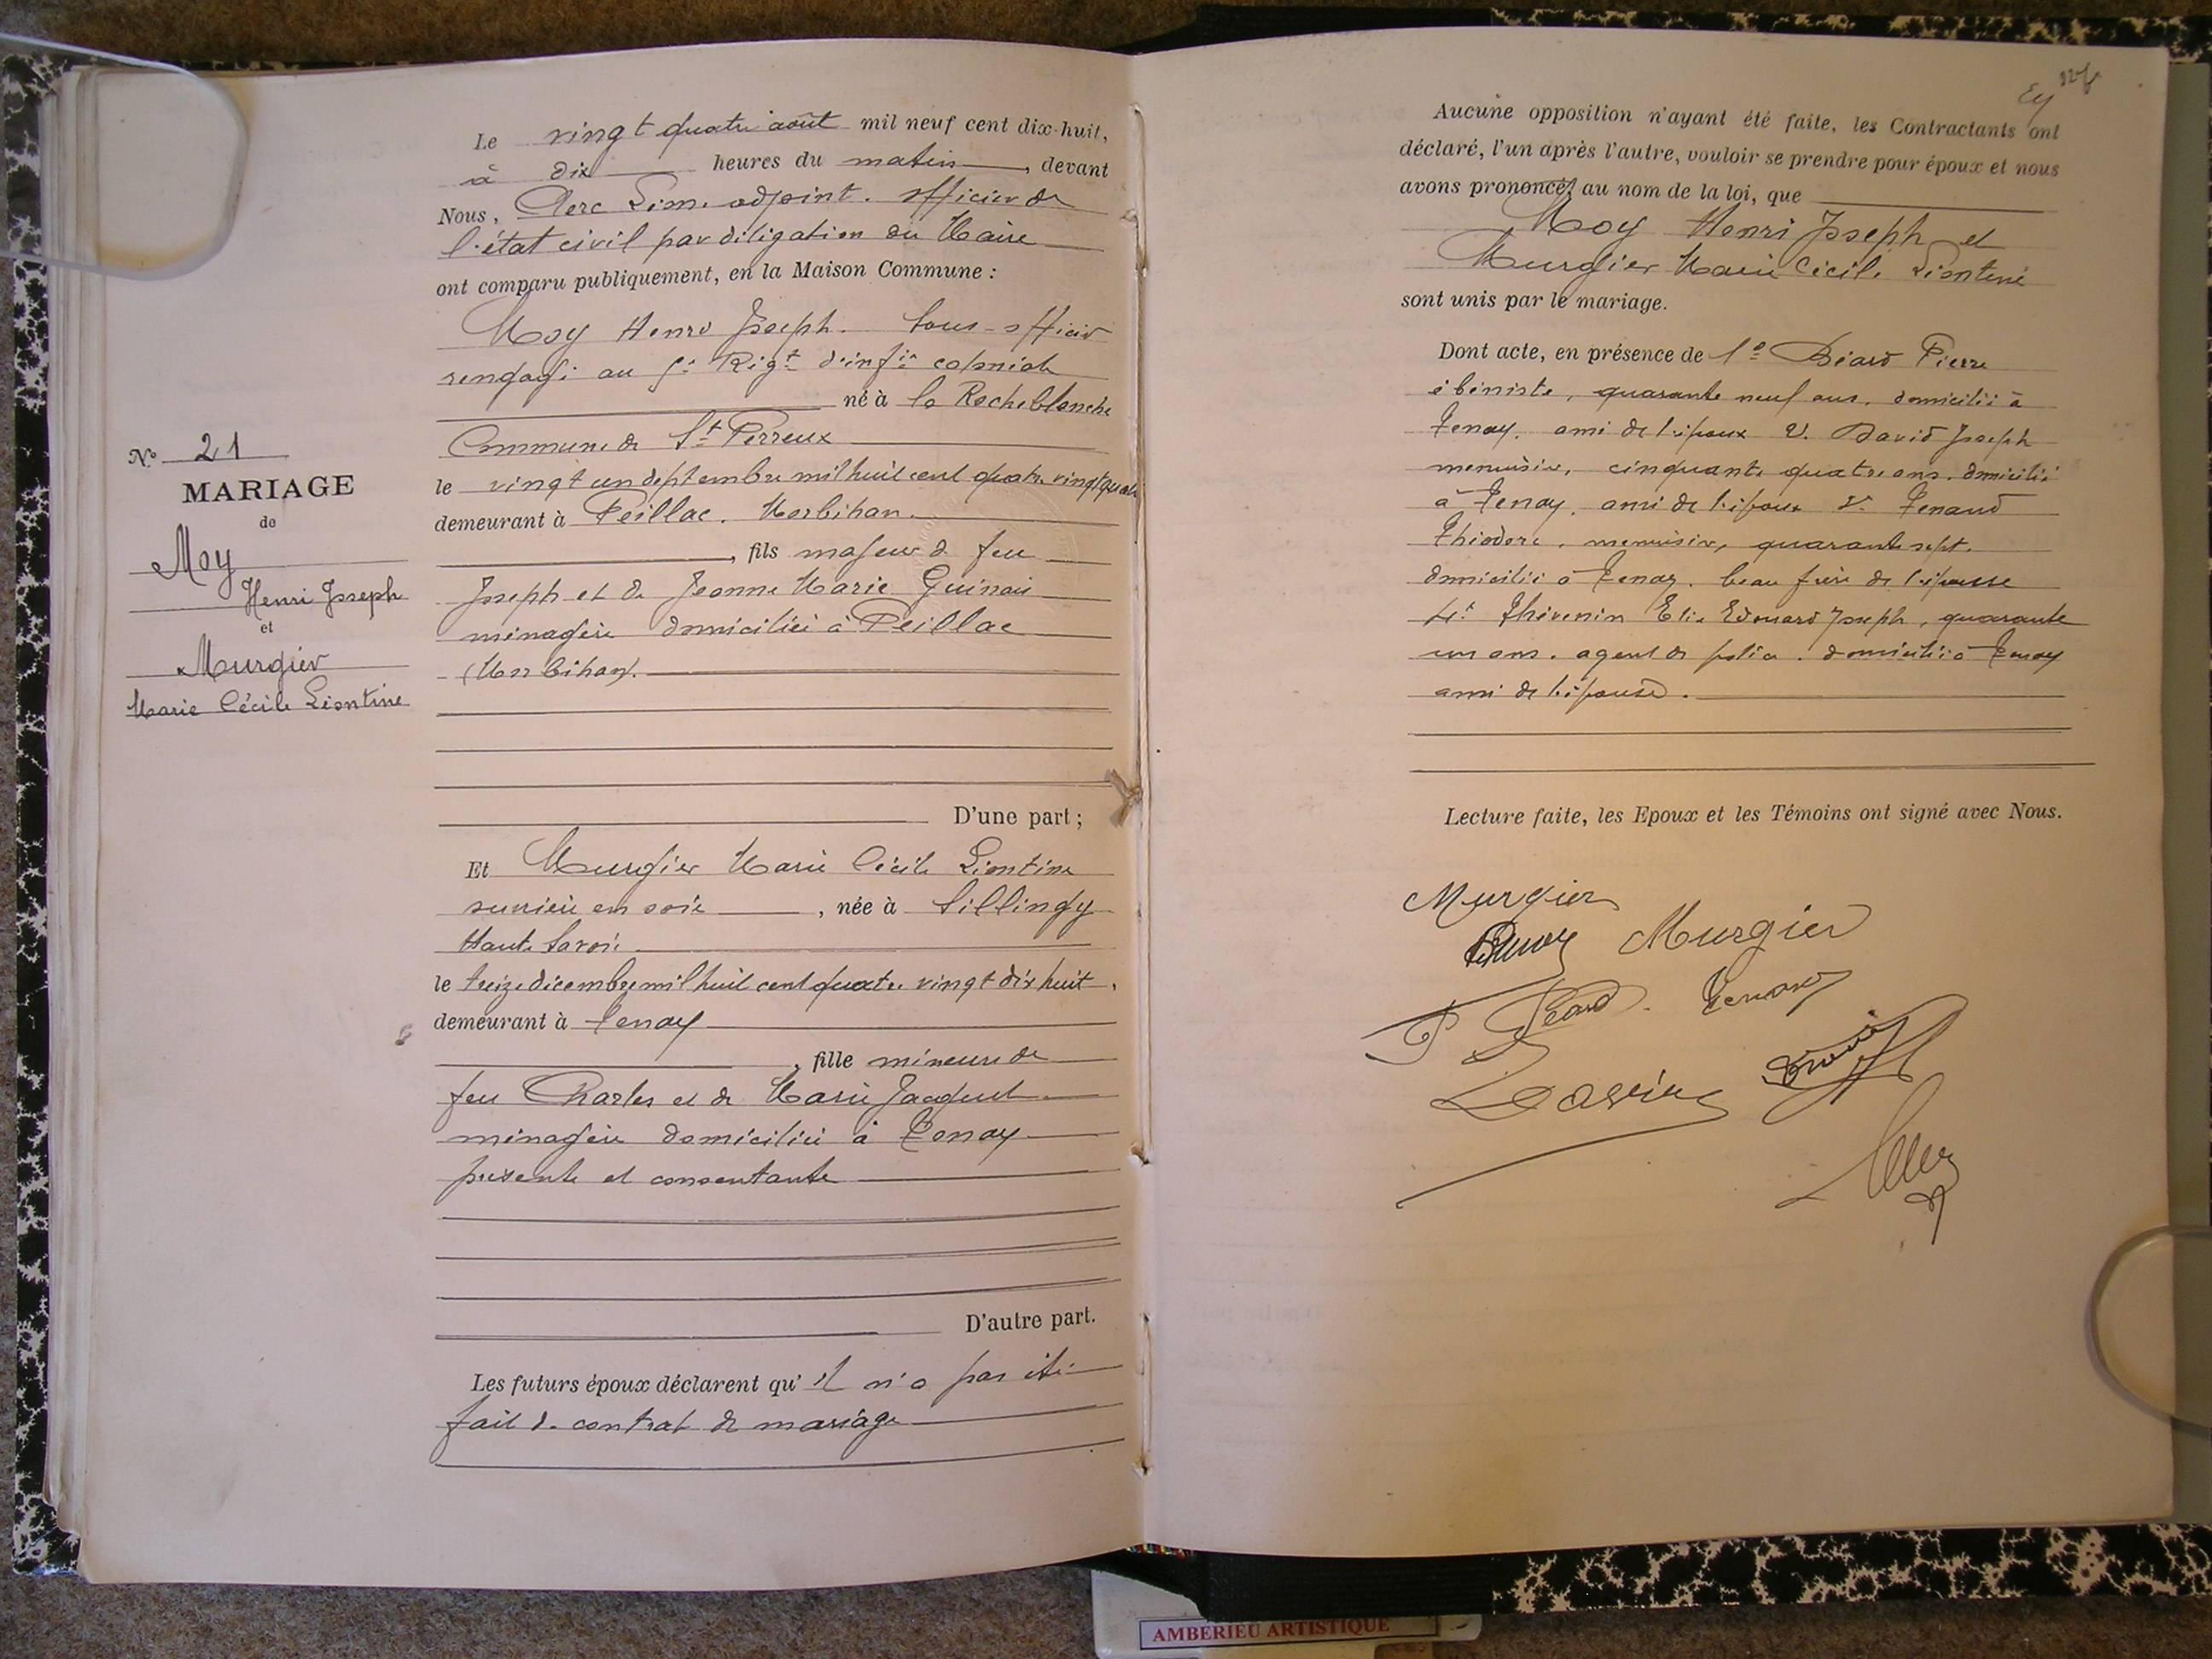 N° 21
MARIAGE
de
Moy
Henri Joseph
et
Murgier
Marie Cécile Léontine
Le vingt quatre août mil neuf cent dix-huit,
à dix heures du matin, devant
Nous, Clerc Léon. adjoint. officier de
l'état civil par délégation du Maire
ont comparu publiquement, en la Maison Commune :
Moy Henri Joseph. Sous-officier
rengagé au Régt d'infie coloniale
né à la Roche blanche
Commune de St Perreux
le vingt un septembre mil huit cent quatre vingt quatre
demeurant à Peillac. Morbihan.
, fils majeur de feu
Joseph et de Jeanne Marie Guimais
ménagère domiciliée à Peillac
(Morbihan).
D'une part ;
Et Murgier Marie Cécile Léontine
ouvrière en soie, née à Sillingy
Haute Savoie
le treize décembre mil huit cent quatre vingt dix huit,
demeurant à Tenay
, fille mineure de
feu Charles et de Marie Jacquet
ménagère domiciliée à Tenay
présente et consentante
D'autre part.
Les futurs époux déclarent qu'il n'a pas été
fait de contrat de mariage
Aucune opposition n'ayant été faite, les Contractants ont
déclaré, l'un après l'autre, vouloir se prendre pour époux et nous
avons prononcé, au nom de la loi, que
Moy Henri Joseph et
Murgier Marie Cécile Léontine
sont unis par le mariage.
Dont acte, en présence de 1° Béard Pierre
ébéniste, quarante neuf ans, domicilié à
Tenay, ami de l'époux 2. David Joseph
menuisier, cinquante quatre ans, domicilié
à Tenay, ami de l'époux Tenand
Théodore, menuisier, quarante sept,
domicilié à Tenay. beau frère de l'épouse
4° Thévenin Elie Edouard Joseph, quarante
un ans. agent de police. domicilié à Tenay
ami de l'épouse.
Lecture faite, les Epoux et les Témoins ont signé avec Nous.
Murgier
Murgier
P Béard. Tenand
David
AMBERIEU ARTISTIQUE